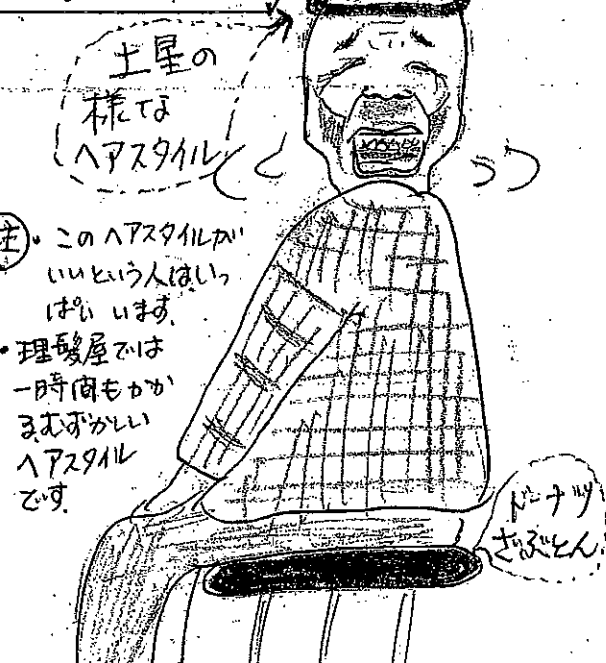 土星の
様てな
ヘアスタイル
注・このヘアスタイルが
いいという人はいっ
ぱい います。
・理髪屋では
一時間もかか
るむずかしい
ヘアスタイル
です。
ドーナツ
ざぶとん